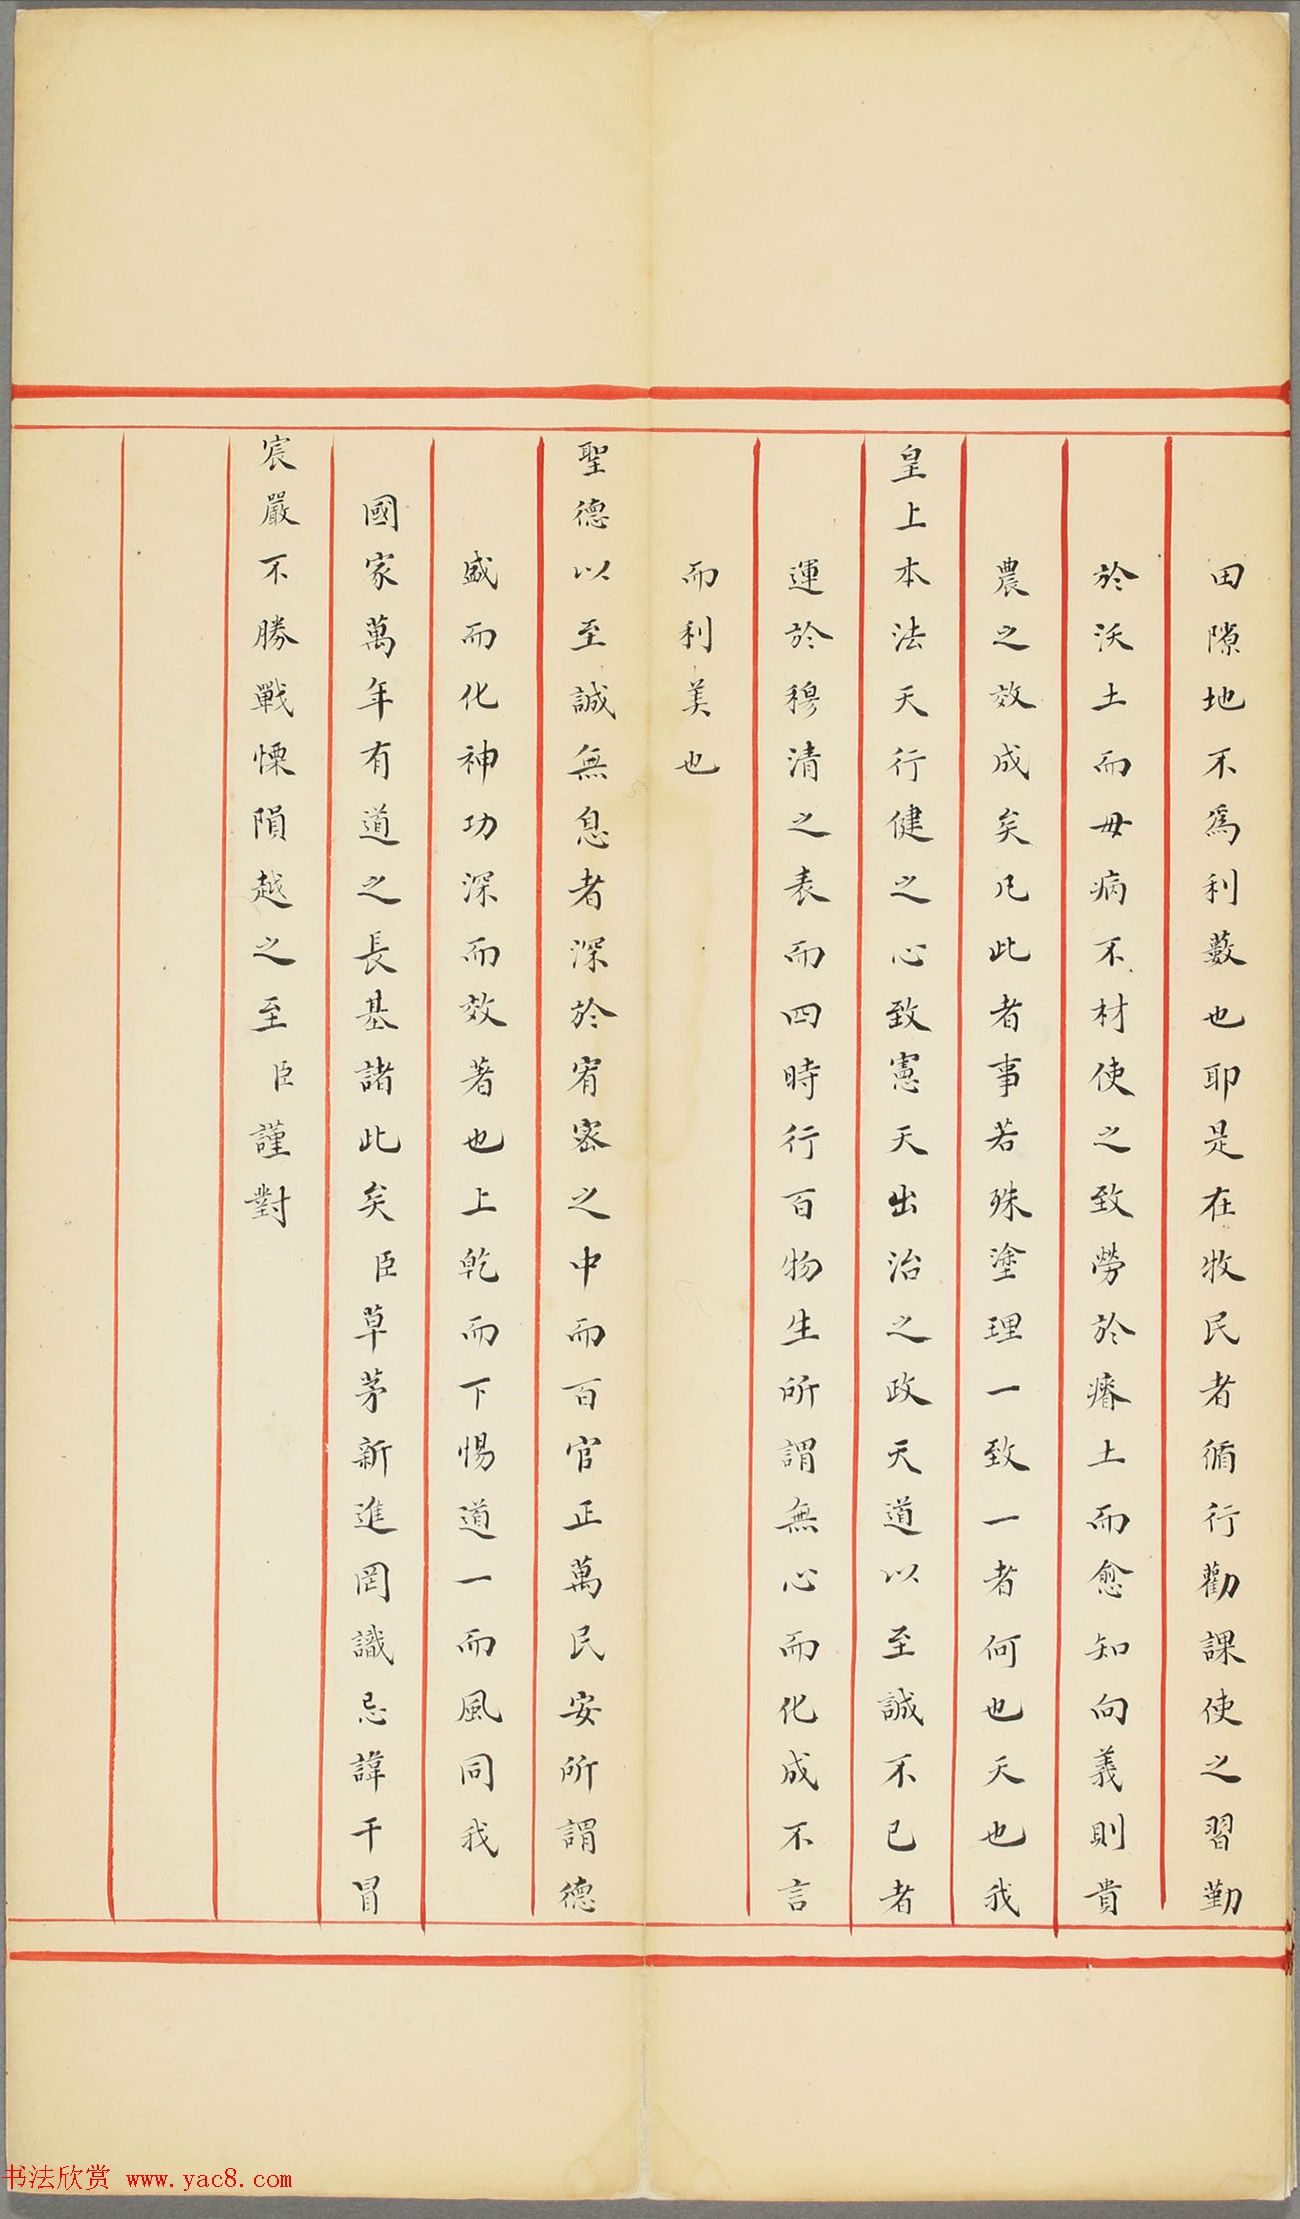 田隙地不爲利藪也耶是在牧民者循行勸課使之習勤
於沃土而毋病不材使之致勞於瘠土而愈知向義則貴
農之效成矣凡此者事若殊塗理一致一者何也天也我
皇上本法天行健之心致憲天出治之政天道以至誠不已者
運於穆清之表而四時行百物生所謂無心而化成不言
而利美也
聖德以至誠無息者深於宥密之中而百官正萬民安所謂德
盛而化神功深而效著也上乾而下惕道一而風同我
國家萬年有道之長基諸此矣臣草茅新進罔識忌諱干冒
宸嚴不勝戰慄隕越之至臣謹對
书法欣赏 www.yac8.com